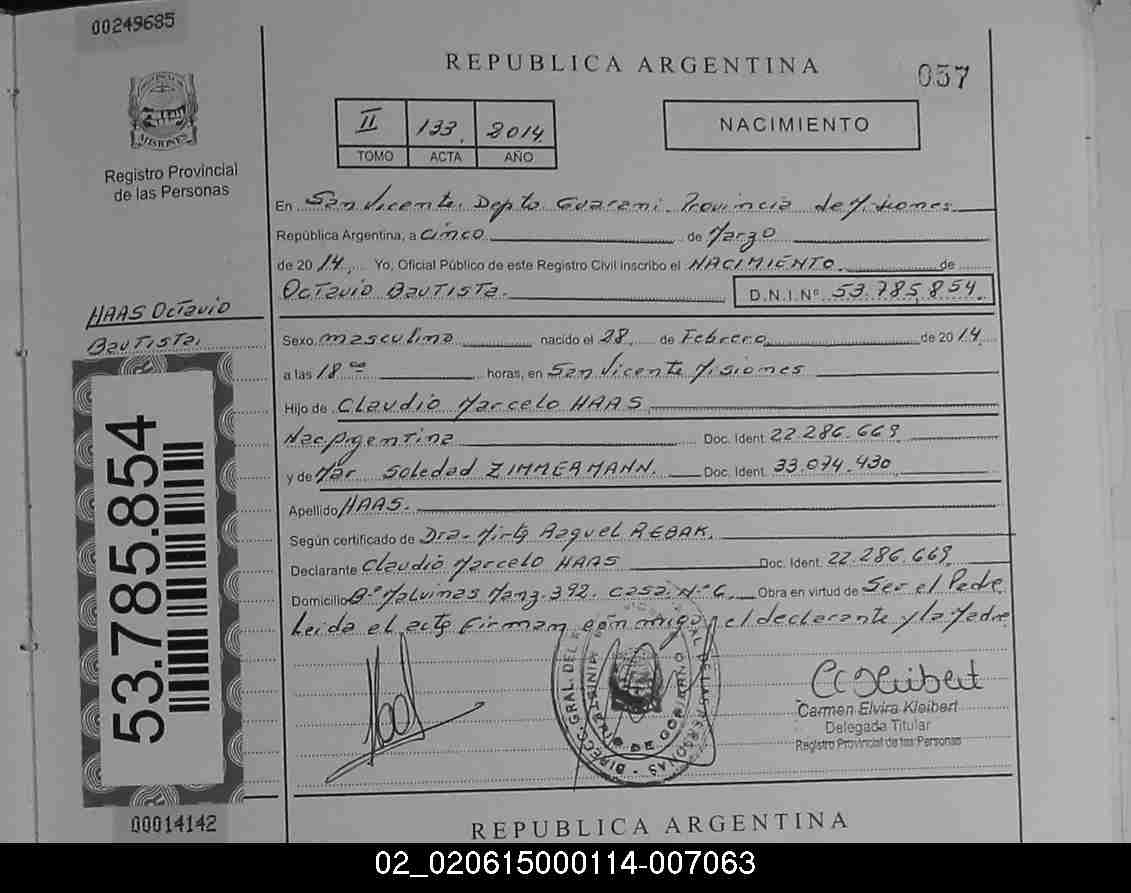 00249685
REPUBLICA ARGENTINA
037
MISIONES
Registro Provincial
de las Personas
II 133. 2014
TOMO ACTA AÑO
NACIMIENTO
En San Vicente. Depto Guarani. Provincia de Misiones
República Argentina, a cinco de Marzo
de 20 14. Yo, Oficial Público de este Registro Civil inscribo el NACIMIENTO. de
Octavio Bautista. D.N.I.Nº 53.785.854.
HAAS Octavio
Bautista.
Sexo masculino nacido el 28. de Febrero de 20 14.
a las 18 oo horas, en San Vicente Misiones
Hijo de Claudio Marcelo HAAS
Nac. Argentina Doc. Ident. 22.286.669
y de Mar Soledad ZIMMERMANN. Doc. Ident. 33.074.430
Apellido HAAS.
Según certificado de Dra. Mirta Raquel REBAK.
Declarante Claudio Marcelo HAAS Doc. Ident. 22.286.669
Domicilio Bº Malvinas Manz. 392. Casa. Nº 6. Obra en virtud de Ser el Padre
Leida el acta Firmam con migo, el declarante y la Madre
53.785.854
Carmen Elvira Kleibert
Delegada Titular
Registro Provincial de las Personas
00014142
REPUBLICA ARGENTINA
02_020615000114-007063